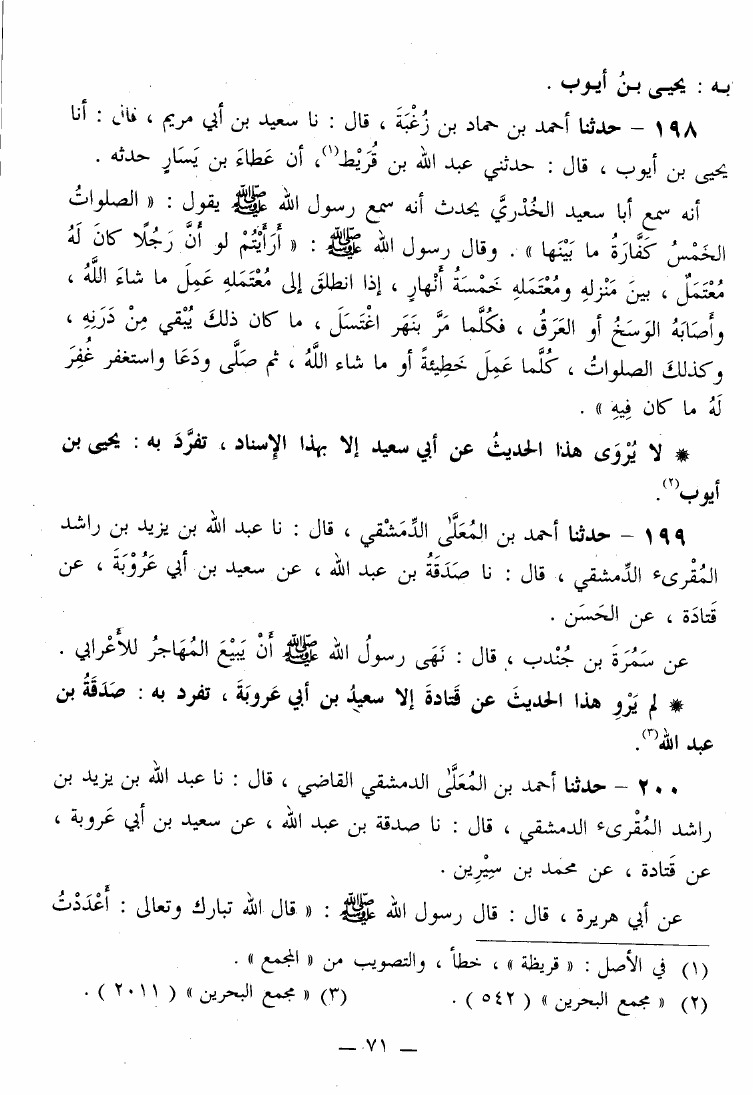 به : يحيى بنُ أيوب .
١٩٨ – حدثنا أحمد بن حماد بن زُغْبَةَ ، قال : نا سعيد بن أبي مريم ، قال : أنا
يحيى بن أيوب ، قال : حدثني عبد الله بن قُرَيْط(١)، أن عَطاءَ بن يَسَارٍ حدثه .
أنه سمع أبا سعيد الخُدْريَّ يحدث أنه سمع رسول الله ﷺ يقول : « الصلواتُ
الخَمْسُ كَفَّارَةُ ما بَيْنَها » . وقال رسول الله ﷺ : « أَرَأَيْتُمْ لو أَنَّ رَجُلًا كانَ لَهُ
مُعْتَمَلٌ ، بينَ مَنْزلِهِ ومُعْتَمَلِهِ خَمْسَةُ أَنْهارٍ ، إذا انطلقَ إلى مُعْتَمَلهِ عَمِلَ ما شاءَ اللَّهُ ،
وأصَابَهُ الوَسَخُ أو العَرَقُ ، فكُلَّما مَرَّ بنَهَر اغْتَسَلَ ، ما كان ذلكَ يُبْقي مِنْ دَرَنِهِ ،
وكذلكَ الصلواتُ ، كُلَّما عَمِلَ خَطِيئةً أو ما شاء اللَّهُ ، ثم صَلَّى ودَعَا واستغفر غُفِرَ
لَهُ ما كان فِيهِ » .
* لا يُرْوَى هذا الحديثُ عن أبي سعيد إلا بهذا الإِسناد ، تفرَّدَ به : يحيى بن
أيوب(٢).
١٩٩ – حدثنا أحمد بن المُعَلَّى الدِّمَشْقي ، قال : نا عبد الله بن يزيد بن راشد
المُقْرىء الدِّمشقي ، قال : نا صَدَقَةُ بن عبد الله ، عن سعيد بن أبي عَرُوْبَةَ ، عن
قَتادَة ، عن الحَسَن .
عن سَمُرَةَ بن جُنْدب ، قال : نَهَى رسولُ الله ﷺ أَنْ يَبيْعَ المُهَاجرُ للأَعْرابي .
* لم يَرْوِ هذا الحديثَ عن قَتادةَ إلا سعيدُ بن أبي عَروبَةَ ، تفرد به : صَدَقَةُ بن
عبد الله(٣).
٢٠٠ – حدثنا أحمد بن المُعَلَّى الدمشقي القاضي ، قال : نا عبد الله بن يزيد بن
راشد المُقْرىء الدمشقي ، قال : نا صدقة بن عبد الله ، عن سعيد بن أبي عَروبة ،
عن قَتادة ، عن محمد بن سِيْرِين .
عن أبي هريرة ، قال : قال رسول الله ﷺ : « قال الله تبارك وتعالى : أَعْدَدْتُ
(١) في الأصل : « قريظة » ، خطأ ، والتصويب من « المجمع » .
(٢) « مجمع البحرين » ( ٥٤٢ ) . (٣) « مجمع البحرين » ( ٢٠١١ ) .
– ٧١ –